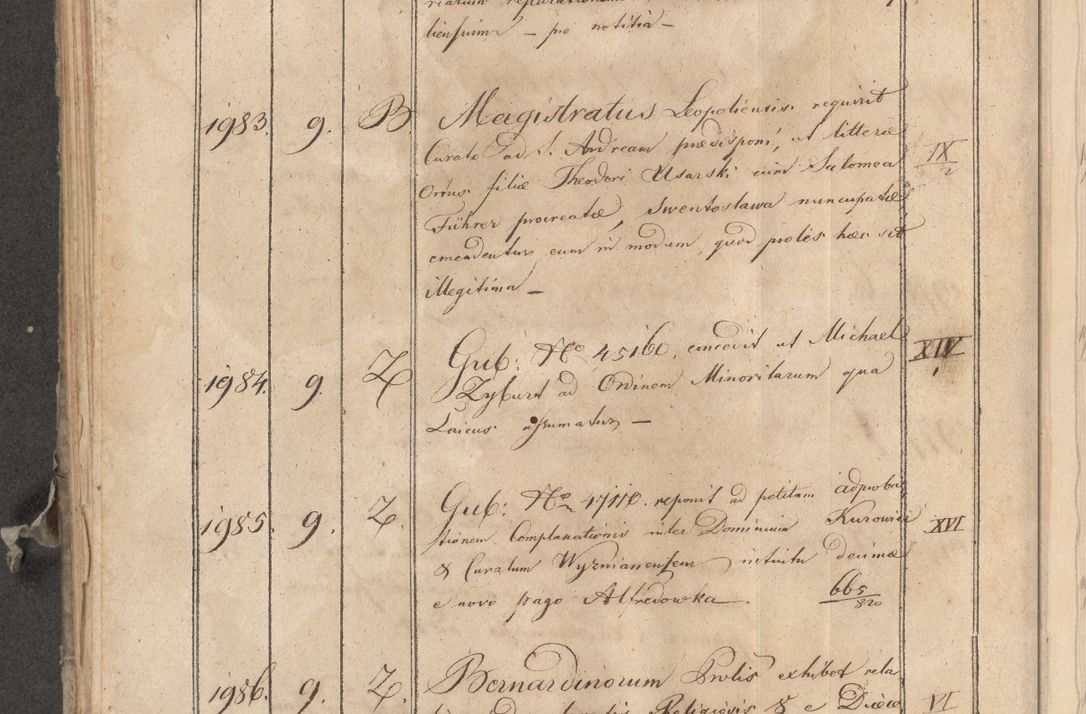 liensium – pro notitia –
1983. 9. B. Magistratus Leopoliensis requirit
Curato ad S. Andream praedisponi, ut litterae IX/2
Ortus filiae Theodori Usarski cum Salomea
Führer procreatae, Swentoslawa nuncupatae
emendentur eum in modum, quod proles haec sit
illegitima –
1984. 9. Z. Gub: No 45160. concedit ut Michael XIV/1
Zyburt ad Ordinem Minoritarum qua
Laicus assumatur –
1985. 9. Z. Gub: No 47110. reponit ad petitam adproba
tionem Complanationis inter Dominium Kurowice XVI
& Curatum Wyznianensem intuitu decimae
e novo pago Alfredowka. 665/820
1986. 9. Z. Bernardinorum Prolis exhibet rela
Religiosis & e Dioece VI